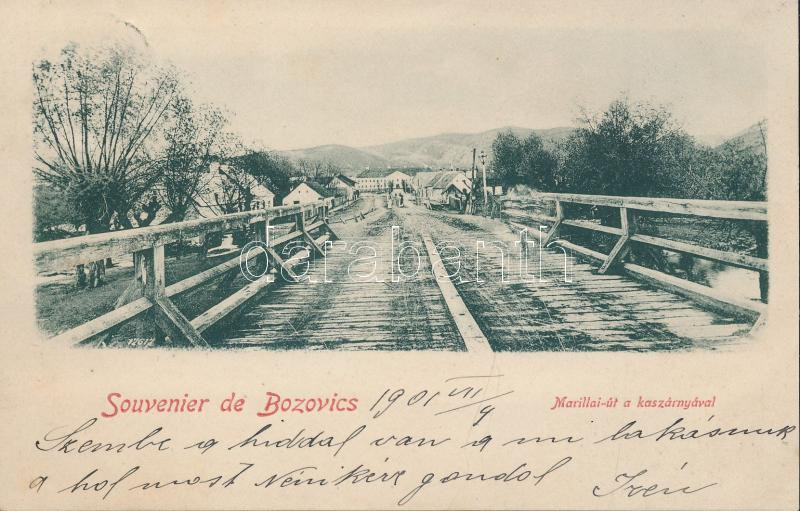 darabanth
12617
Souvenier de Bozovics 1901 VII/9
Marillai-út a kaszárnyával
Szembe a hiddal van a mi lakásunk
a hol most Nénikére gondol Irén